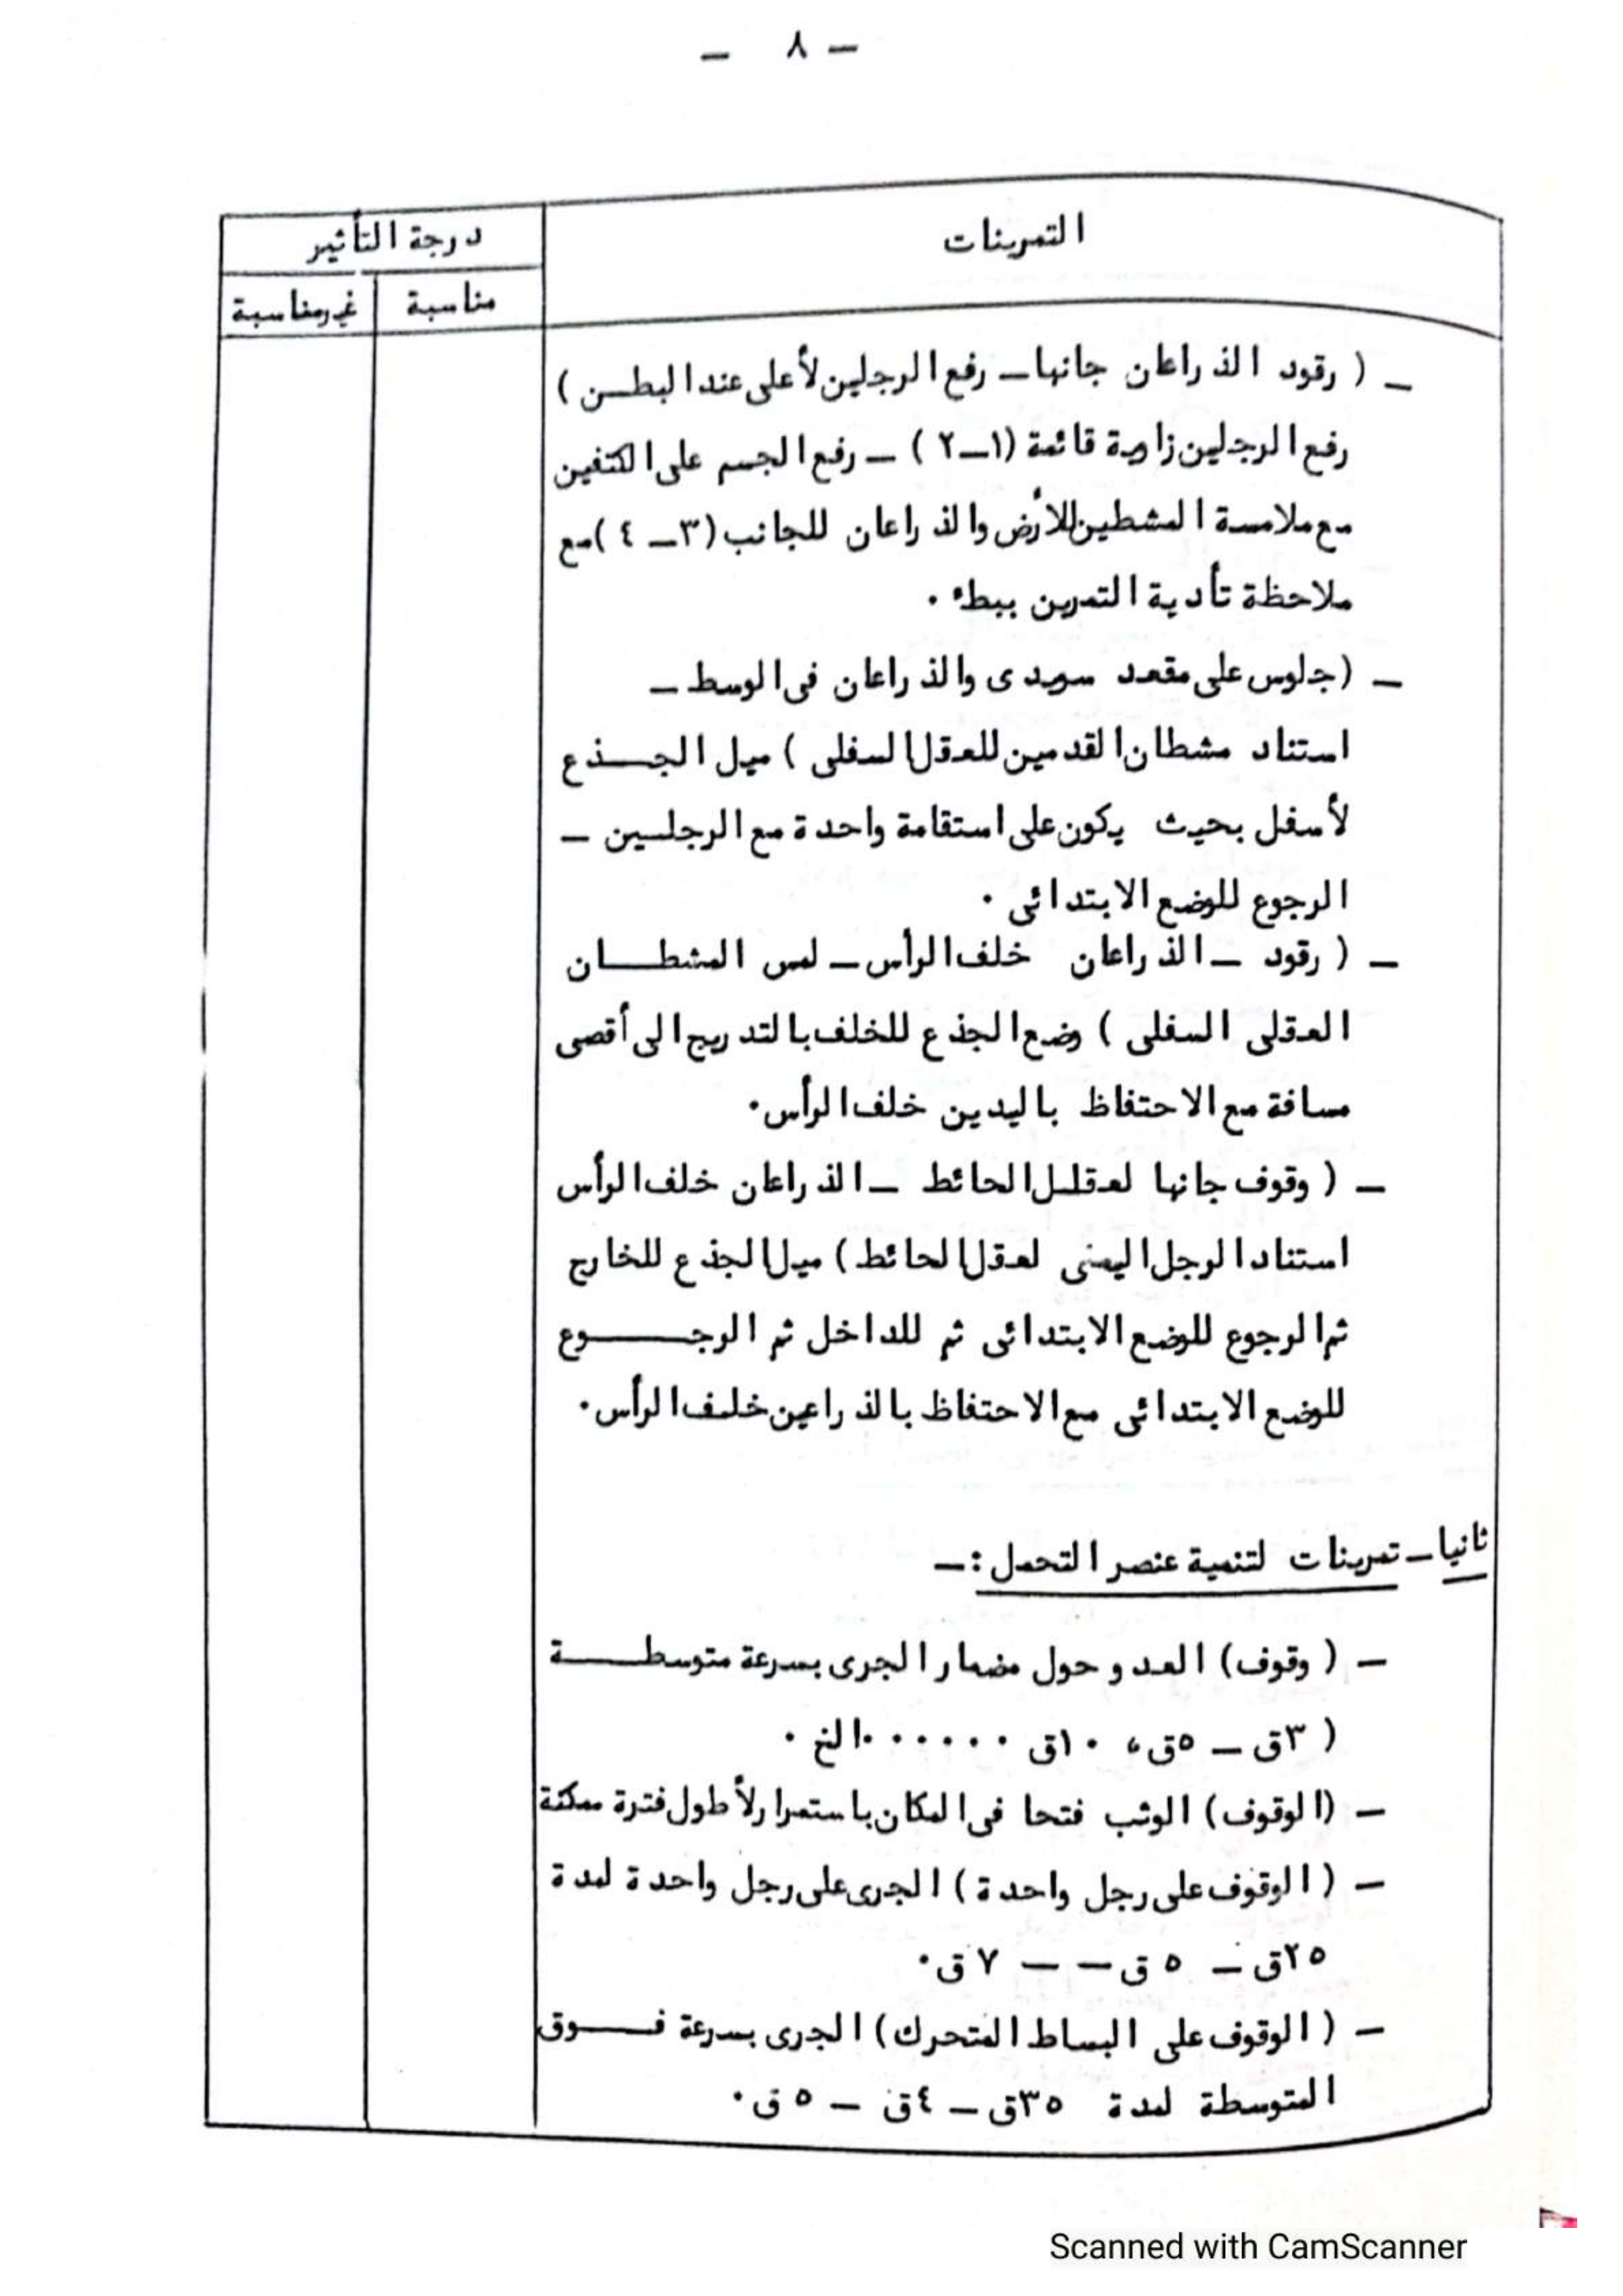 - ٨ -
التمرينات
درجة التأثير
مناسبة
غير مناسبة
- ( رقود الذراعان جانبا - رفع الرجلين لأعلى عند البطن )
رفع الرجلين زاوية قائمة (١-٢ ) - رفع الجسم على الكتفين
مع ملامسة المشطين للأرض والذراعان للجانب (٣- ٤ )مع
ملاحظة تأدية التمرين ببطء .
- (جلوس على مقعد سويدى والذراعان فى الوسط -
استناد مشطان القدمين للعقل السفلى ) ميل الجذع
لأسفل بحيث يكون على استقامة واحدة مع الرجلين -
الرجوع للوضع الابتدائى .
- ( رقود - الذراعان خلف الرأس - لمس المشطان
العقلى السفلى ) وضع الجذع للخلف بالتدريج الى أقصى
مسافة مع الاحتفاظ باليدين خلف الرأس.
- ( وقوف جانبا لعقلل الحائط - الذراعان خلف الرأس
استناد الرجل اليمنى لعقل الحائط ) ميل الجذع للخارج
ثم الرجوع للوضع الابتدائى ثم للداخل ثم الرجوع
للوضع الابتدائى مع الاحتفاظ بالذراعين خلف الرأس.
ثانيا - تمرينات لتنمية عنصر التحمل :-
- ( وقوف) العدو حول مضمار الجرى بسرعة متوسطة
( ٣ق - ٥ق، ١٠ق ٠٠٠٠٠٠ الخ .
- (الوقوف) الوثب فتحا فى المكان باستمرار لأطول فترة ممكنة
- ( الوقوف على رجل واحدة ) الجرى على رجل واحدة لمدة
٢٥ق - ٥ ق - - ٧ ق.
- ( الوقوف على البساط المتحرك ) الجرى بسرعة فوق
المتوسطة لمدة ٣٥ق - ٤ق - ٥ ق.
Scanned with CamScanner